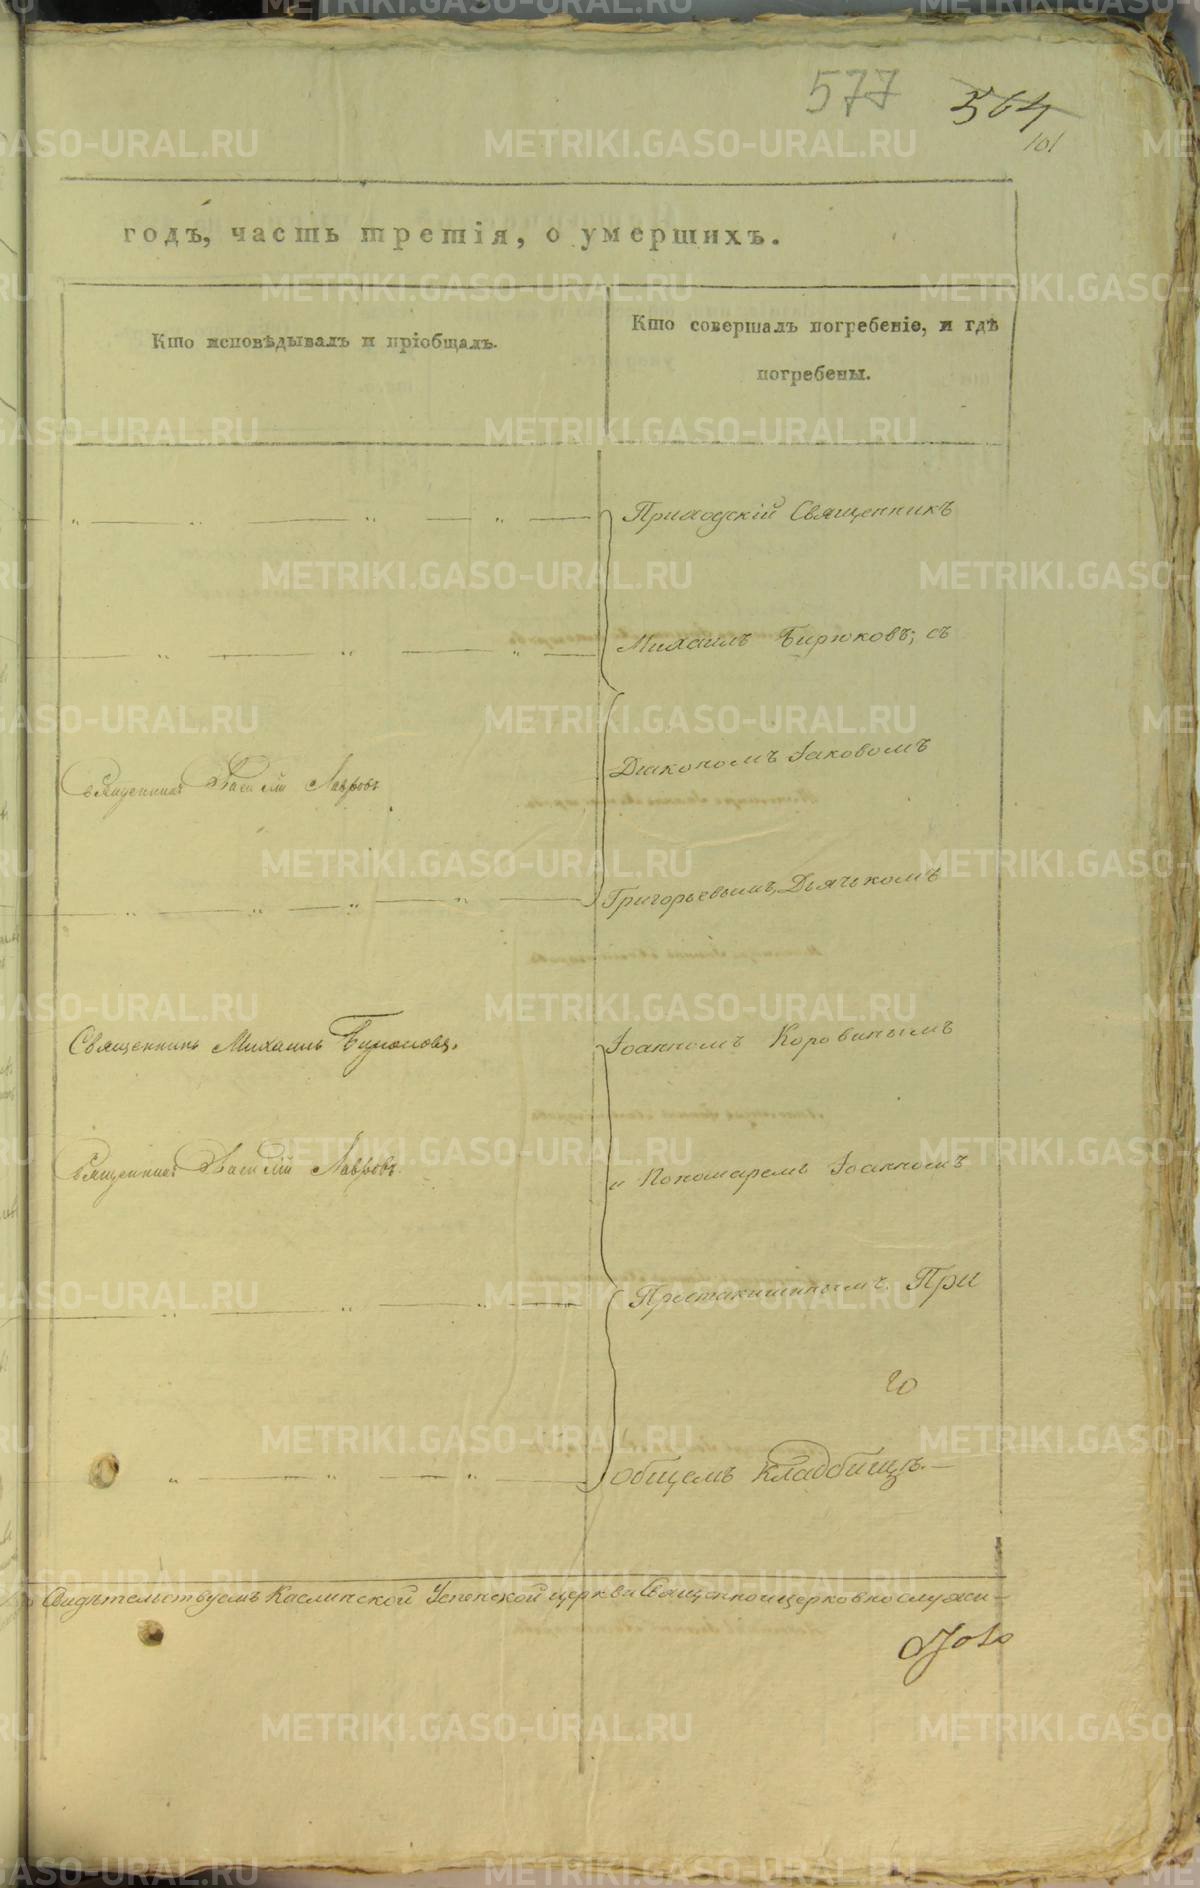 577 564
101
годъ, часть третія, о умершихъ.
Кто исповѣдывалъ и пріобщалъ.
Кто совершалъ погребеніе, и гдѣ
погребены.
Приходскій Священникъ
Михаилъ Бирюковъ; съ
Священникъ Василій Лавровъ
Діакономъ Іаковомъ
Григорьевымъ, Дьячькомъ
Священникъ Михаилъ Бирюковъ.
Іоанномъ Коровинымъ
Священникъ Василій Лавровъ.
и Пономаремъ Іоанномъ
При
общемъ Кладбищѣ.
Свидѣтельствуемъ Каслинской Успенской церкви Священноицерковнослужи-
METRIKI.GASO-URAL.RU